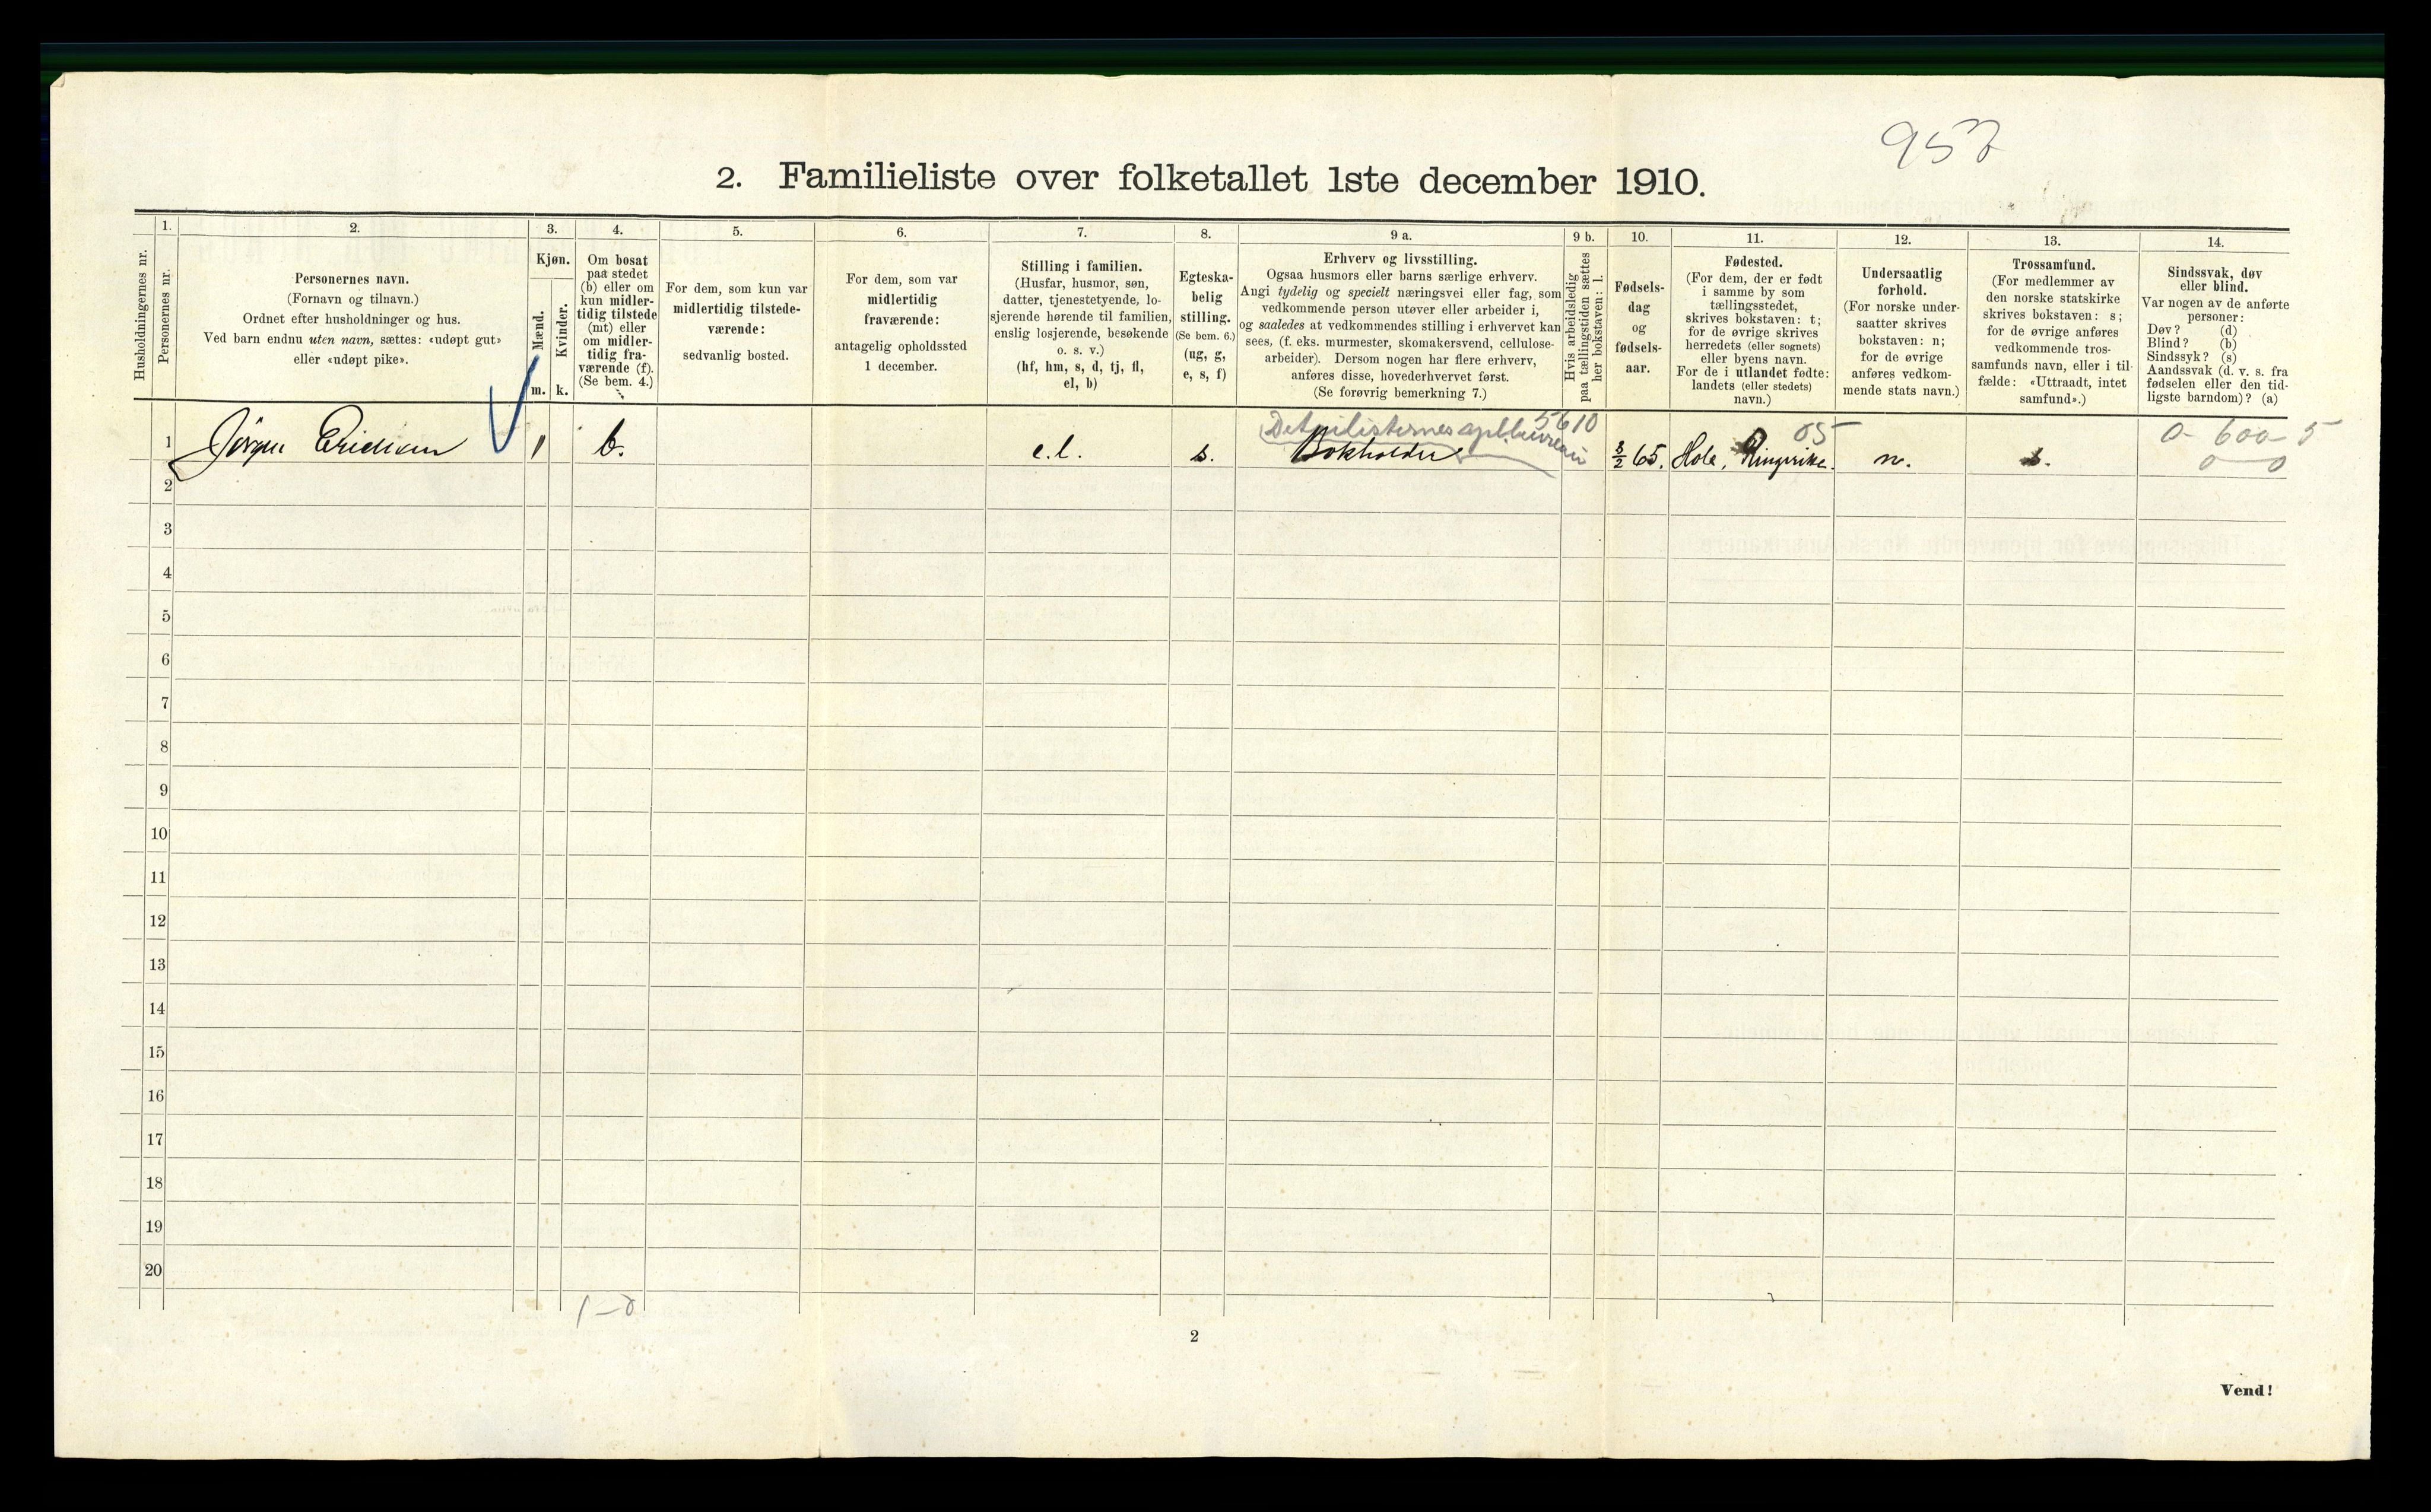 957
2. Familieliste over folketallet 1ste december 1910.
Husholdningernes nr.
1.
Personernes nr.
2.
Personernes navn.
(Fornavn og tilnavn.)
Ordnet efter husholdninger og hus.
Ved barn endnu uten navn, sættes: «udøpt gut»
eller «udøpt pike».
3.
Kjøn.
Mænd.
Kvinder.
m. k.
4.
Om bosat
paa stedet
(b) eller om
kun midler-
tidig tilstede
(mt) eller
om midler-
tidig fra-
værende (f).
(Se bem. 4.)
5.
For dem, som kun var
midlertidig tilstede-
værende:
sedvanlig bosted.
6.
For dem, som var
midlertidig
fraværende:
antagelig opholdssted
1 december.
7.
Stilling i familien.
(Husfar, husmor, søn,
datter, tjenestetyende, lo-
sjerende hørende til familien,
enslig losjerende, besøkende
o. s. v.)
(hf, hm, s, d, tj, fl,
el, b)
8.
Egteska-
belig
stilling.
(Se bem. 6.)
(ug, g,
e, s, f)
9 a.
Erhverv og livsstilling.
Ogsaa husmors eller barns særlige erhverv.
Angi tydelig og specielt næringsvei eller fag, som
vedkommende person utøver eller arbeider i,
og saaledes at vedkommendes stilling i erhvervet kan
sees, (f. eks. murmester, skomakersvend, cellulose-
arbeider). Dersom nogen har flere erhverv,
anføres disse, hovederhvervet først.
(Se forøvrig bemerkning 7.)
9 b.
Hvis arbeidsledig
paa tællingstiden sættes
her bokstaven: l.
10.
Fødsels-
dag
og
fødsels-
aar.
11.
Fødested.
(For dem, der er født
i samme by som
tællingsstedet,
skrives bokstaven: t;
for de øvrige skrives
herredets (eller sognets)
eller byens navn.
For de i utlandet fødte:
landets (eller stedets)
navn.)
12.
Undersaatlig
forhold.
(For norske under-
saatter skrives
bokstaven: n;
for de øvrige
anføres vedkom-
mende stats navn.)
13.
Trossamfund.
(For medlemmer av
den norske statskirke
skrives bokstaven: s;
for de øvrige anføres
vedkommende tros-
samfunds navn, eller i til-
fælde: «Uttraadt, intet
samfund».)
14.
Sindssvak, døv
eller blind.
Var nogen av de anførte
personer:
Døv? (d)
Blind? (b)
Sindssyk? (s)
Aandssvak (d. v. s. fra
fødselen eller den tid-
ligste barndom)? (a)
Detailisternes opl.bureau 5610 05 0-600-5
1 Jörgen Erichsen 1 b. e.l. s. Bokholder 3/2 65. Hole, Ringerike. n. s. 0 - 0
2
3
4
5
6
7
8
9
10
11
12
13
14
15
16
17
18
19
20
1-0
2
Vend!